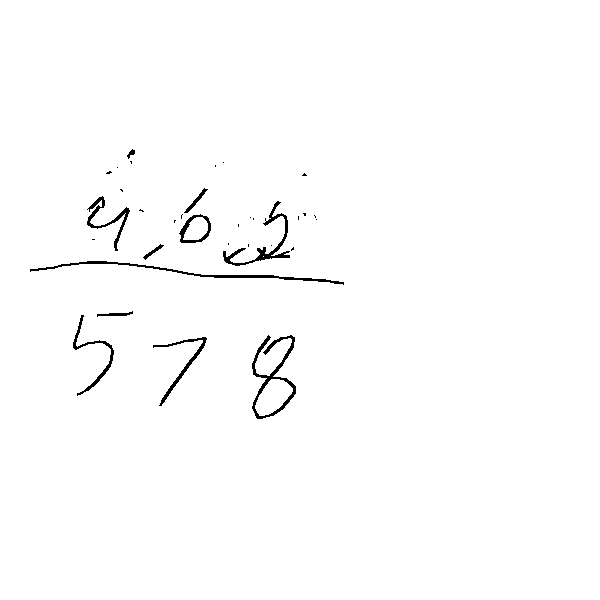 4,62
578